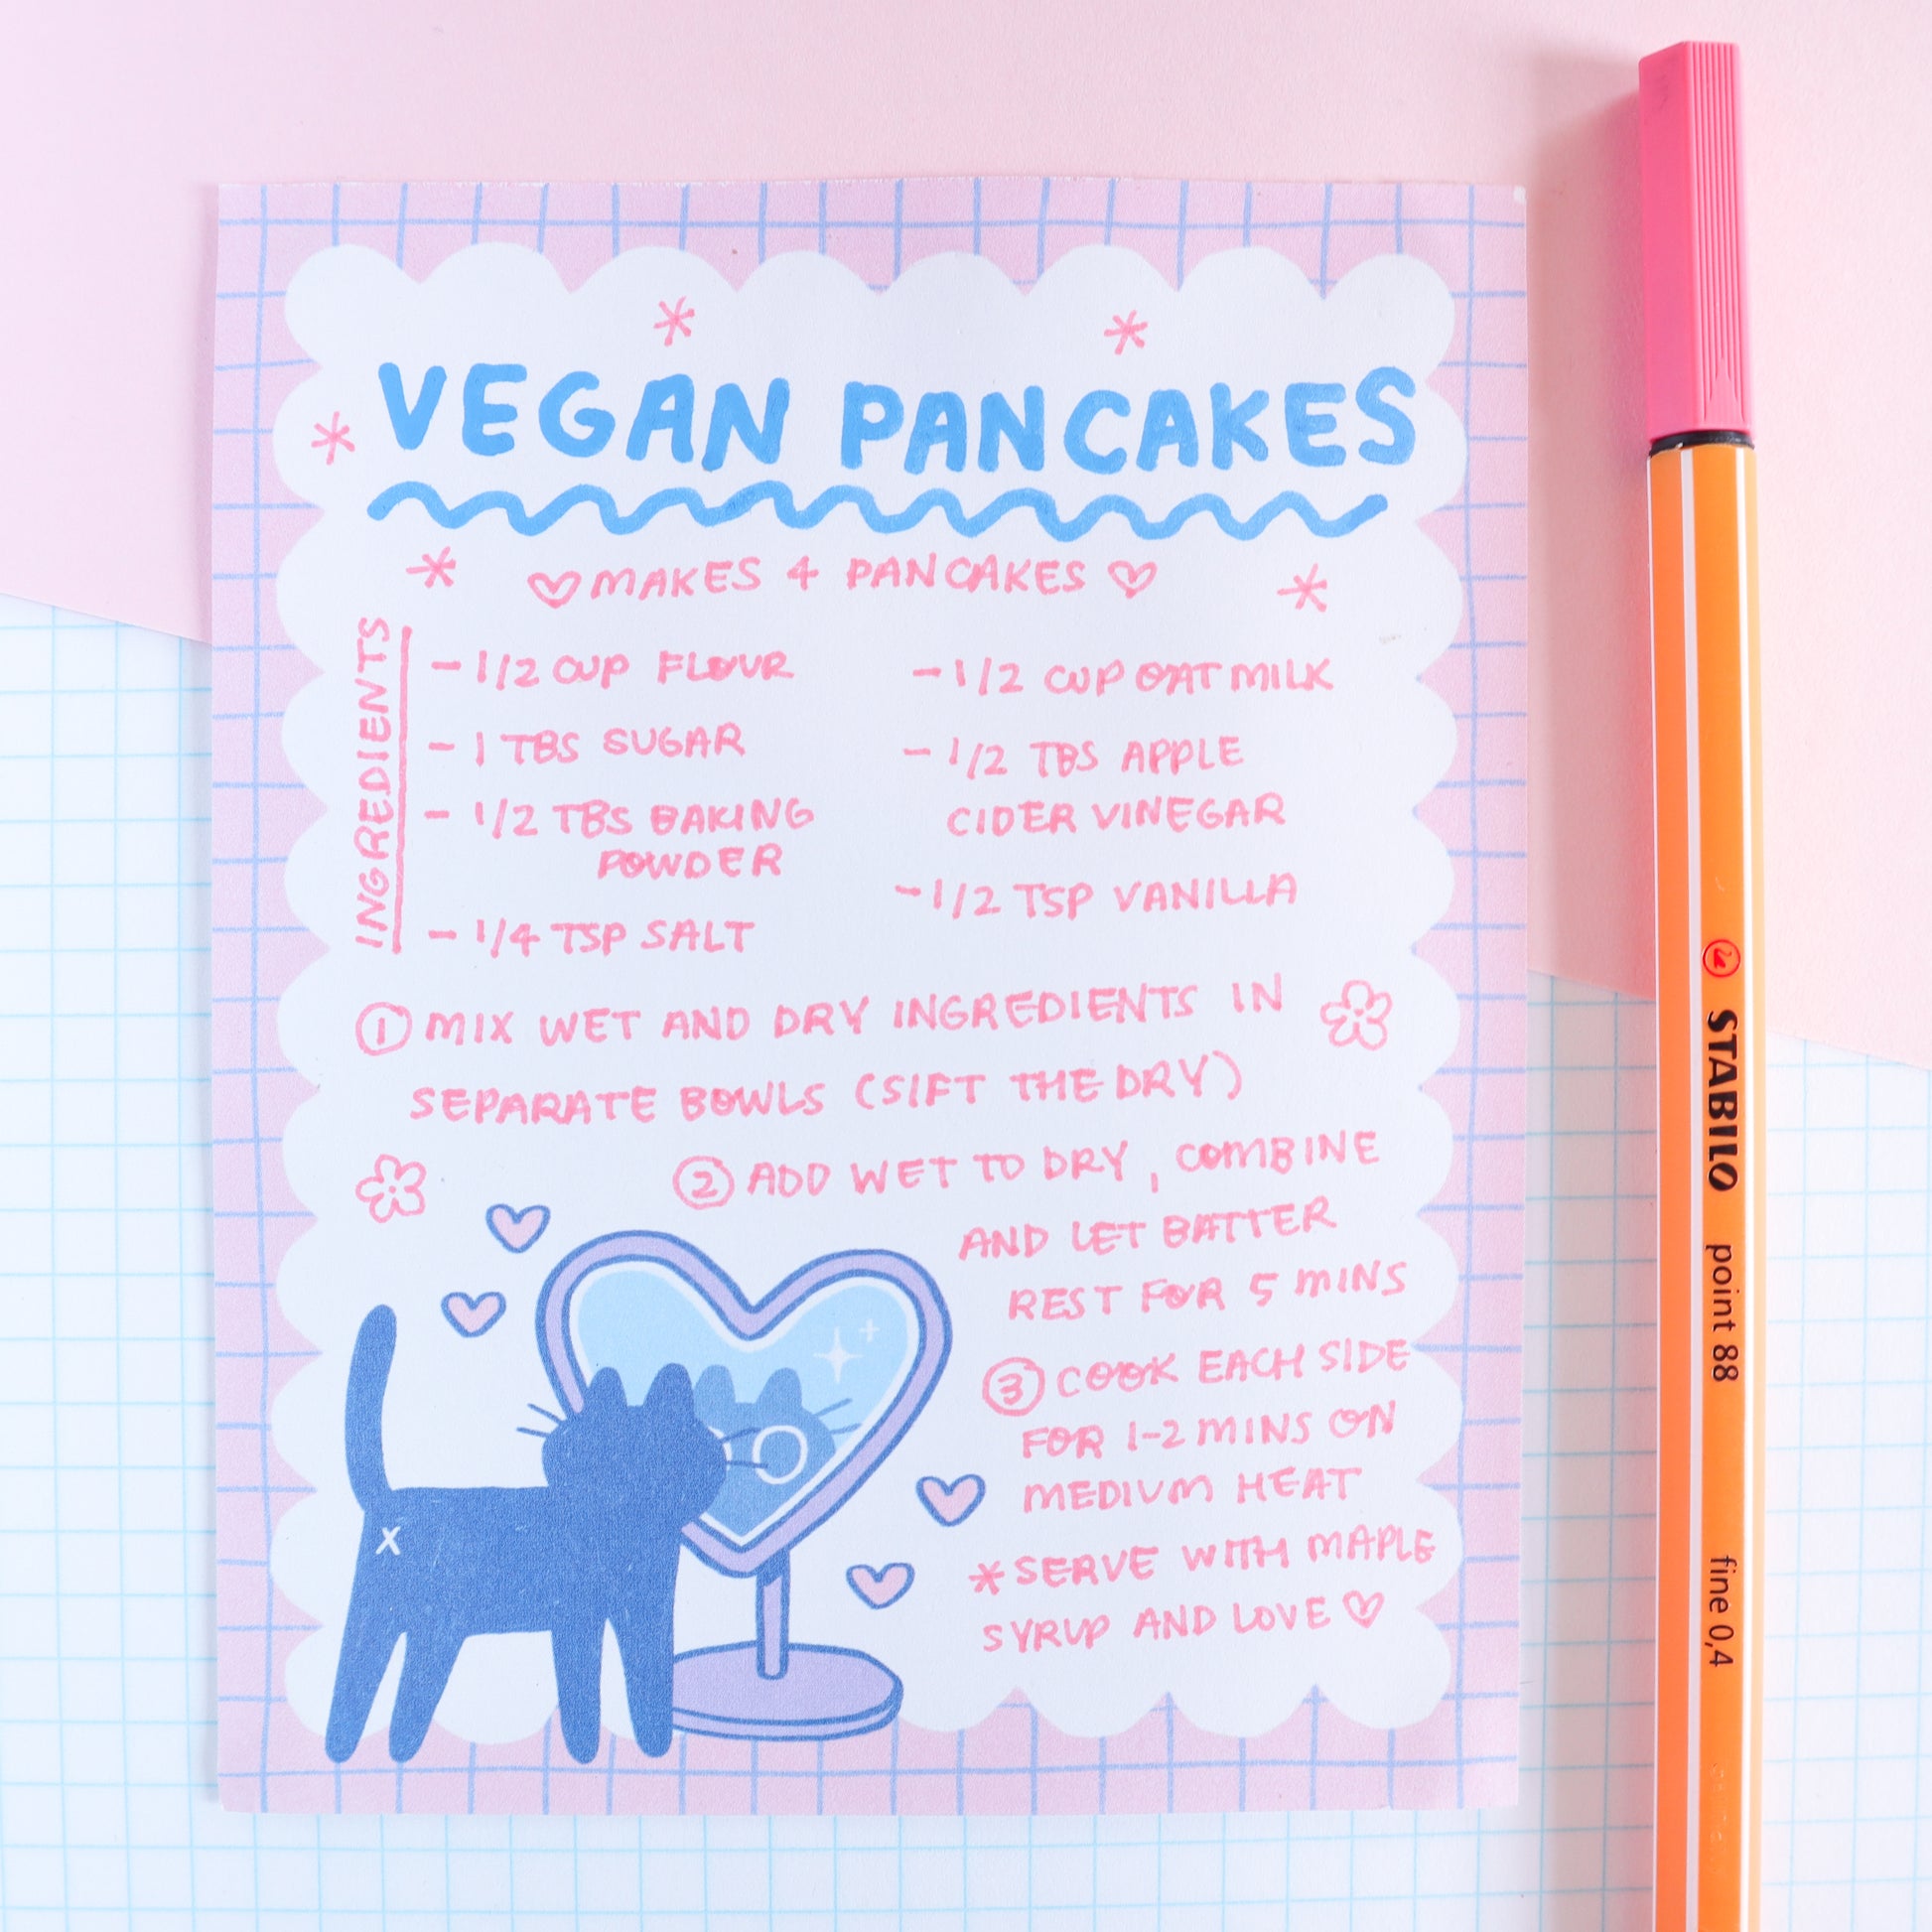 VEGAN PANCAKES
MAKES 4 PANCAKES
INGREDIENTS
- 1/2 CUP FLOUR
- 1 TBS SUGAR
- 1/2 TBS BAKING
POWDER
- 1/4 TSP SALT
- 1/2 CUP OAT MILK
- 1/2 TBS APPLE
CIDER VINEGAR
- 1/2 TSP VANILLA
① MIX WET AND DRY INGREDIENTS IN
SEPARATE BOWLS (SIFT THE DRY)
② ADD WET TO DRY, COMBINE
AND LET BATTER
REST FOR 5 MINS
③ COOK EACH SIDE
FOR 1-2 MINS ON
MEDIUM HEAT
* SERVE WITH MAPLE
SYRUP AND LOVE ♡
STABILO point 88 fine 0,4